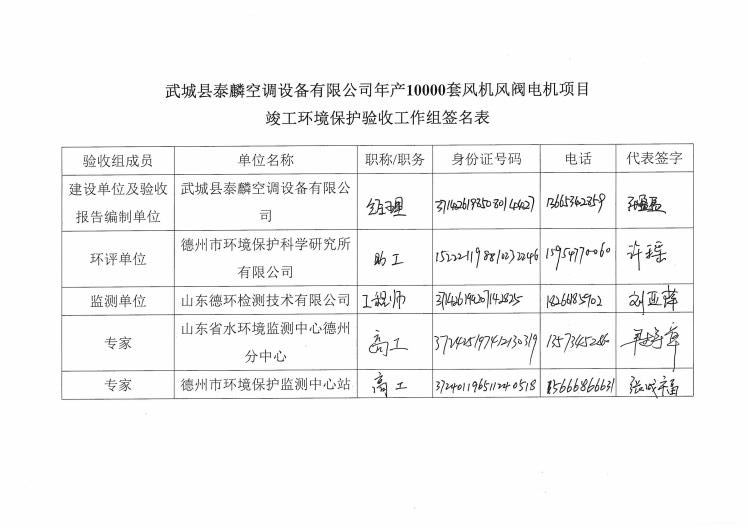 武城县泰麟空调设备有限公司年产10000套风机风阀电机项目
竣工环境保护验收工作组签名表
验收组成员 单位名称 职称/职务 身份证号码 电话 代表签字
建设单位及验收 武城县泰麟空调设备有限公
报告编制单位 司 经理 371426198508014427
环评单位 德州市环境保护科学研究所
有限公司 助工 152221198810232246 15954770060 许瑶
监测单位 山东德环检测技术有限公司 工程师 刘亚萍
专家 山东省水环境监测中心德州
分中心 高工 372425197412130319
专家 德州市环境保护监测中心站 高工 372401196511240518 15666866631 张成福